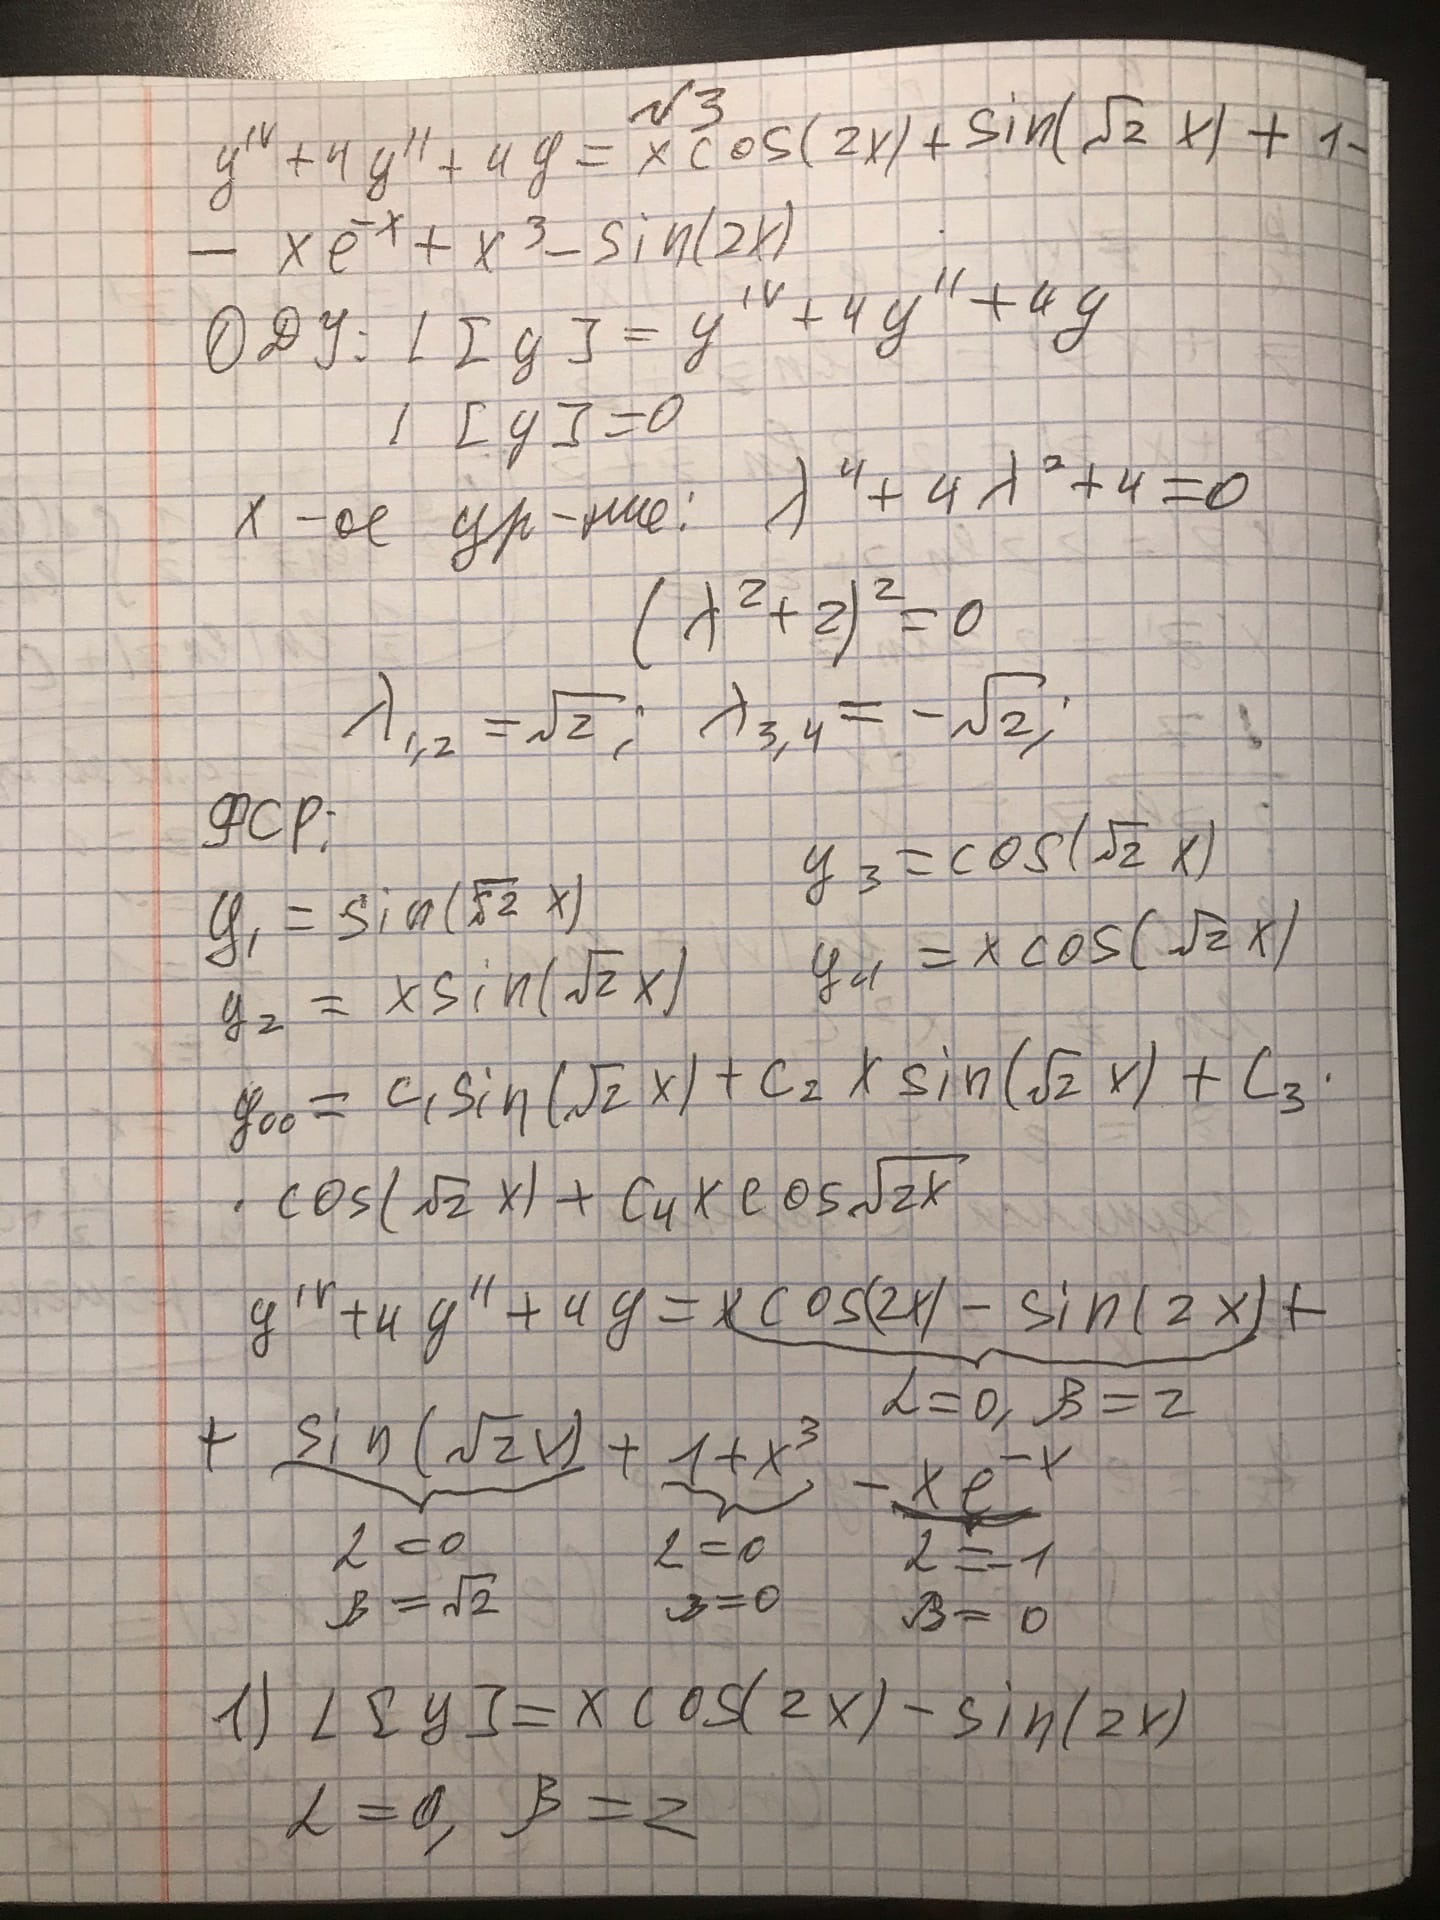 №3
y^IV + 4y'' + 4y = x cos(2x) + sin(√2 x) + 1 -
- xe^-x + x^3 - sin(2x)
ОДУ: L[y] = y^IV + 4y'' + 4y
L[y] = 0
х-ое ур-ние: λ^4 + 4λ^2 + 4 = 0
(λ^2 + 2)^2 = 0
λ_1,2 = √2; λ_3,4 = -√2;
ФСР:
y_1 = sin(√2 x) y_3 = cos(√2 x)
y_2 = x sin(√2 x) y_4 = x cos(√2 x)
y_oo = C_1 sin(√2 x) + C_2 x sin(√2 x) + C_3 ·
· cos(√2 x) + C_4 x cos √2x
y^IV + 4y'' + 4y = x cos(2x) - sin(2x) +
α = 0, β = 2
+ sin(√2 x) + 1 + x^3 - xe^-x
α = 0 α = 0 α = -1
β = √2 β = 0 β = 0
1) L[y] = x cos(2x) - sin(2x)
α = 0, β = 2